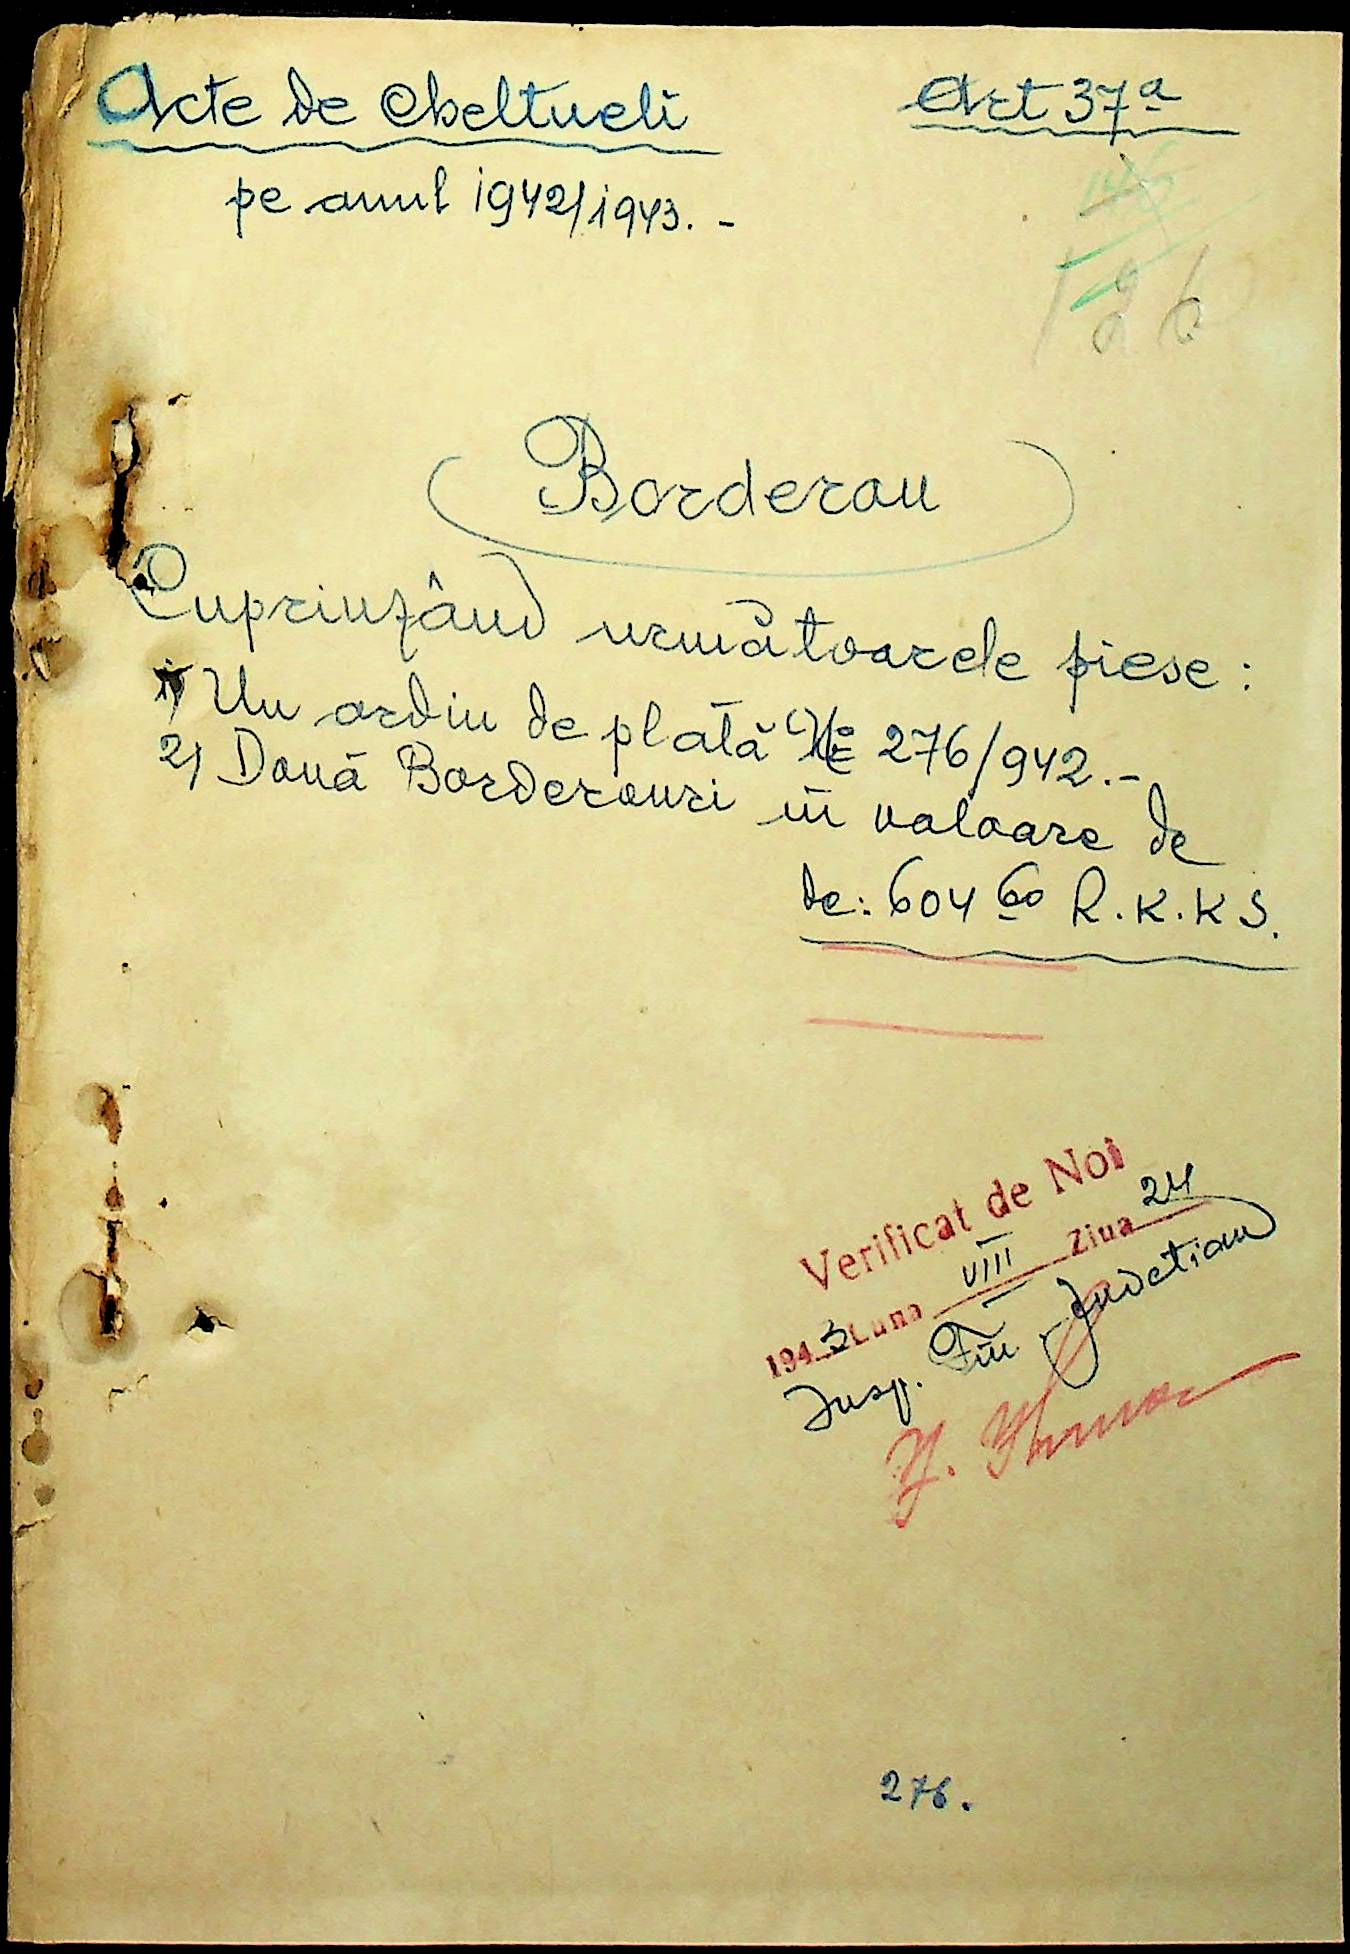 Acte de Cheltueli
Art 37ª
pe anul 1942/1943.-
126
Borderou
Cuprinzând următoarele piese:
1) Un ordin de plată № 276/942.-
2) Două Borderouri în valoare de
de: 604 60 R.K.K.S.
Verificat de Noi
1943 Luna VIII Ziua 24
Insp. Fin Judetian
276.